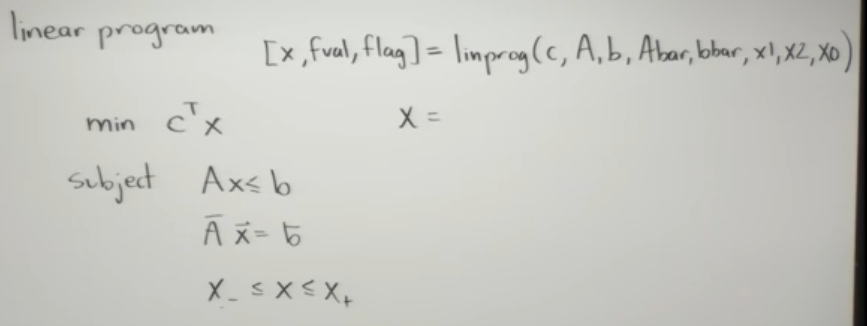 linear program
[x, fval, flag] = linprog(c, A, b, Abar, bbar, x1, x2, x0)
min cᵀx
x =
subject Ax ≤ b
A̅ x⃗ = b̅
x₋ ≤ x ≤ x₊